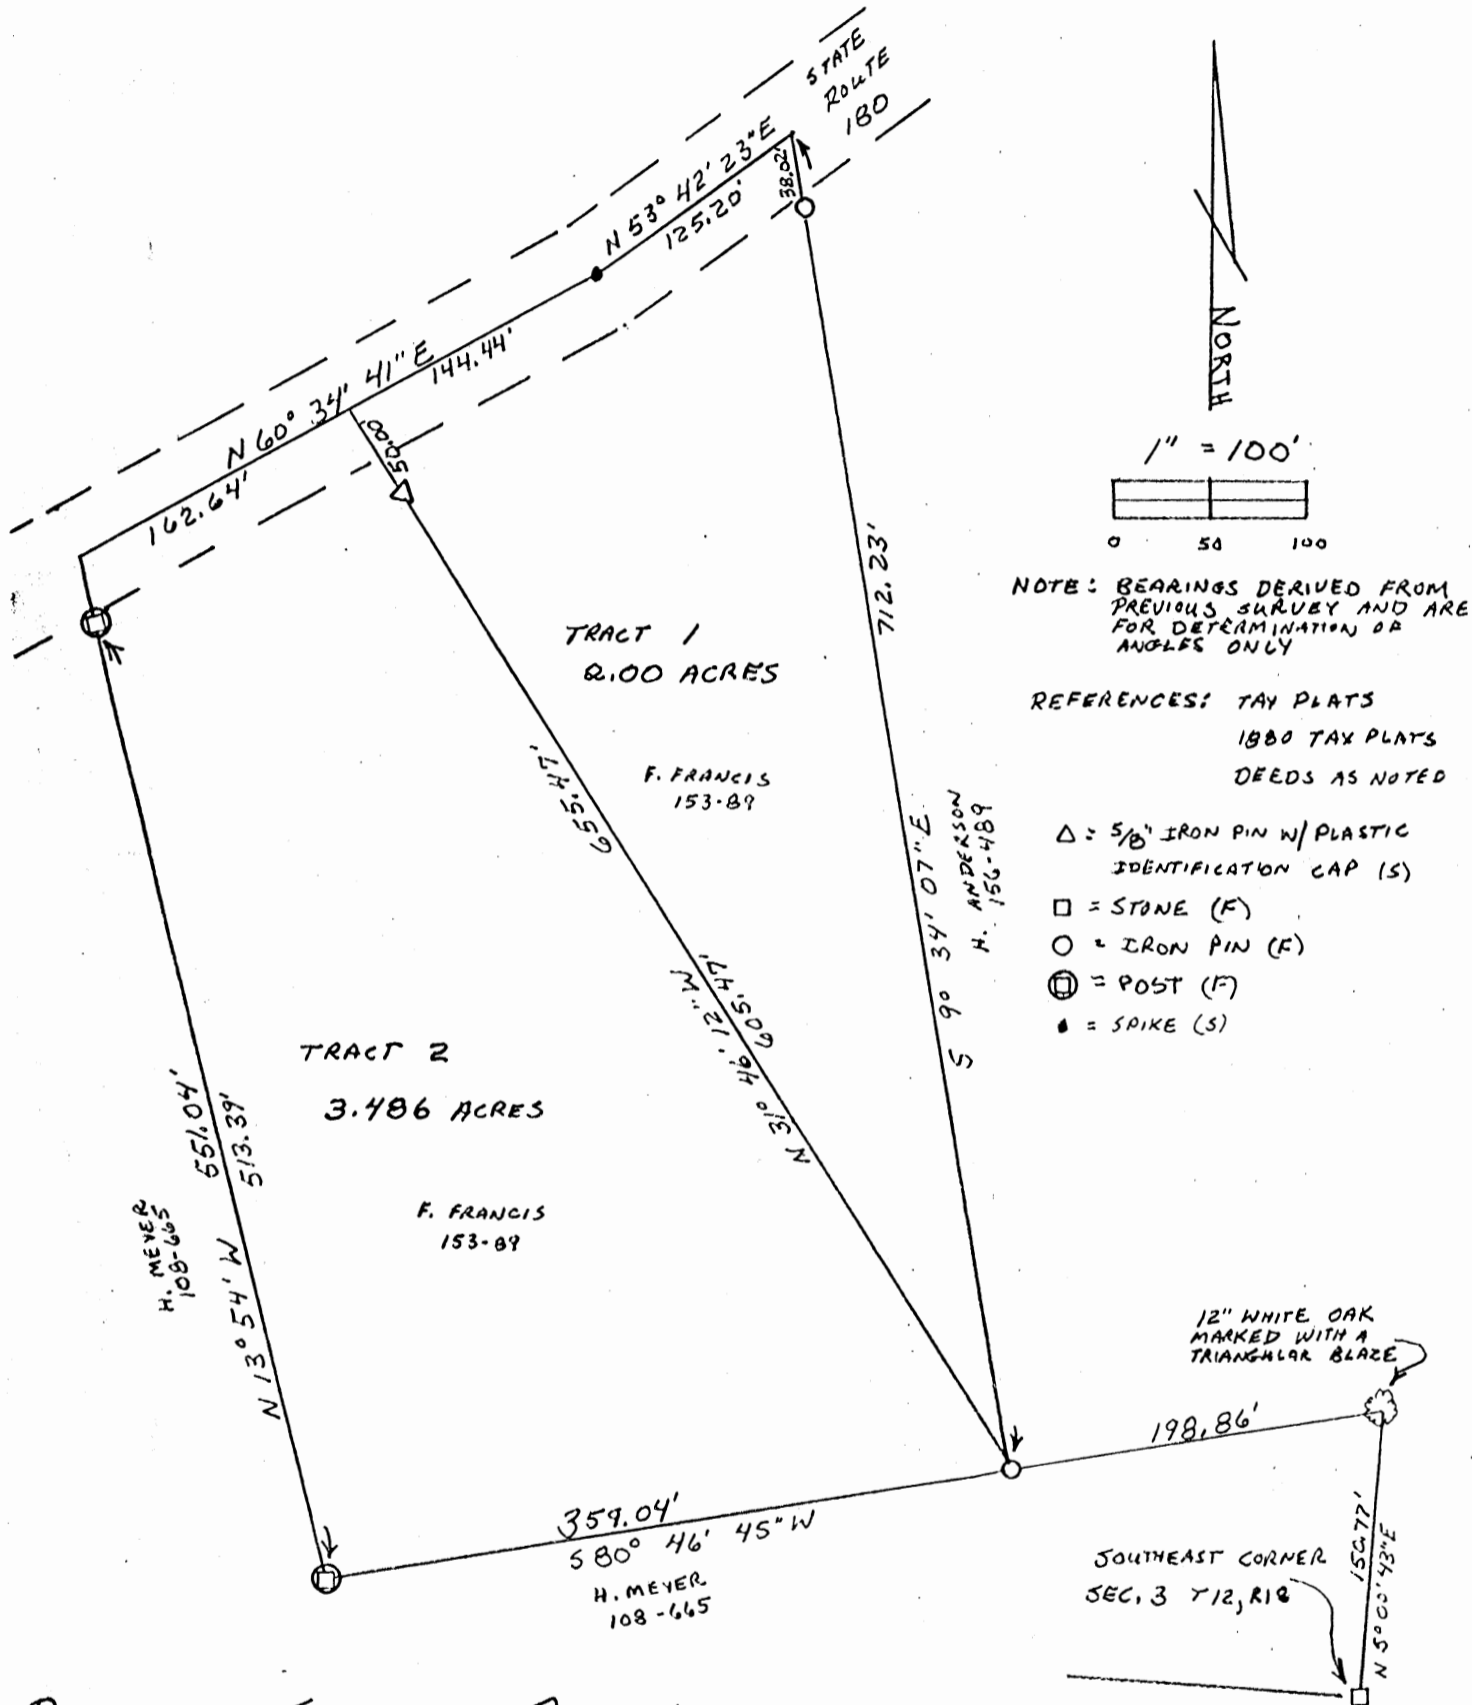 STATE
ROUTE
180
N 53° 42' 23" E
125.20'
38.02'
N 60° 34' 41" E
144.44'
162.64'
50.00'
NORTH
1" = 100'
0 50 100
NOTE: BEARINGS DERIVED FROM
PREVIOUS SURVEY AND ARE
FOR DETERMINATION OF
ANGLES ONLY
REFERENCES: TAX PLATS
1880 TAX PLATS
DEEDS AS NOTED
△ = 5/8" IRON PIN W/ PLASTIC
IDENTIFICATION CAP (S)
□ = STONE (F)
○ = IRON PIN (F)
= POST (F)
= SPIKE (S)
712.23'
S 9° 34' 07" E
H. ANDERSON
156-489
TRACT 1
2.00 ACRES
F. FRANCIS
153-89
655.47'
605.47'
N 31° 46' 12" W
TRACT 2
3.486 ACRES
F. FRANCIS
153-89
551.04'
513.39'
N 13° 54' W
H. MEYER
108-665
359.04'
S 80° 46' 45" W
H. MEYER
108-665
198.86'
12" WHITE OAK
MARKED WITH A
TRIANGULAR BLAZE
SOUTHEAST CORNER
SEC. 3 T12, R18
N 5° 00' 43" E